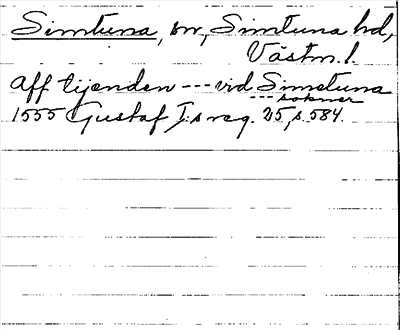 Simtuna, sn, Simtuna hd,
Västm. l.
Aff tijenden --- vid Simetuna
--- soknær
1555 Gustaf I:s reg. 25, s. 584.